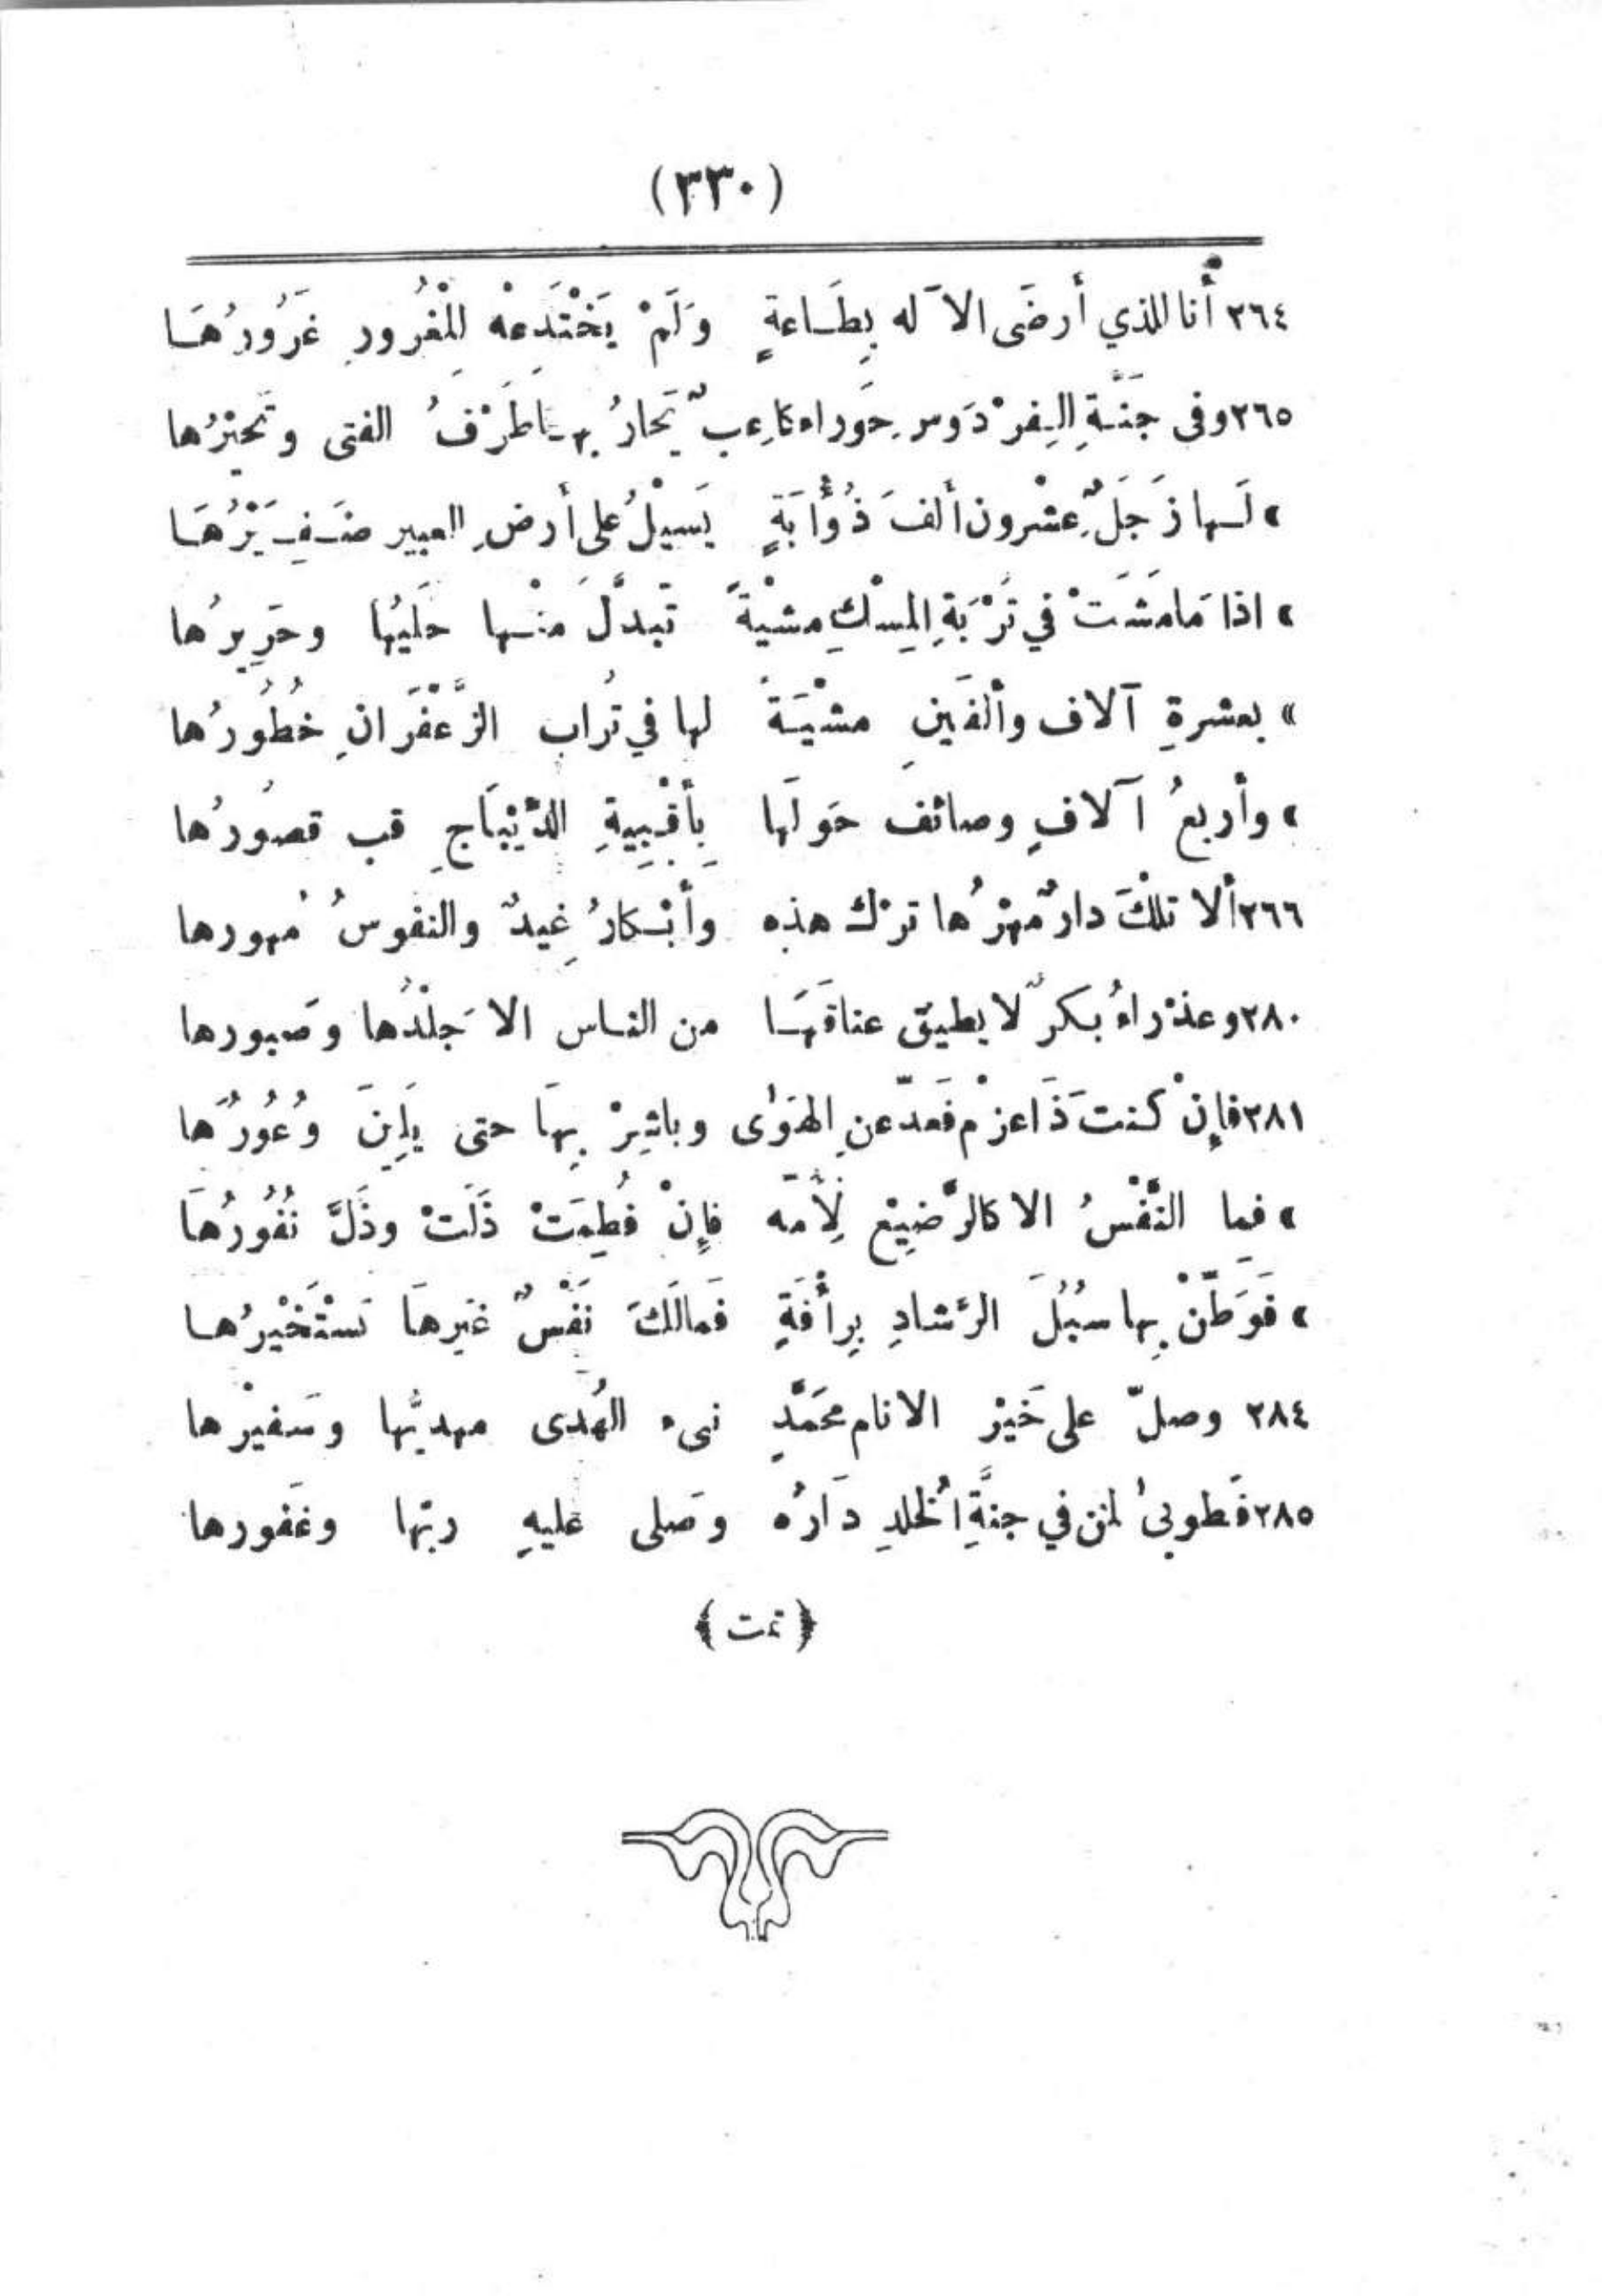 (٣٣٠)
٢٦٤ أنا للذي أرضَى الآله بِطَاعةٍ وَلَمْ يَخْتَدِعْهُ لِلْغُرُورِ غَرُورُهَا
٢٦٥ وفى جَنَّةِ الفِرْدَوسِ حَوراء كاعِبٌ يَحارُ بهَا طَرْفُ الفتى وتَحيْرُها
» لَها زَجَلٌ عِشْرون ألفَ ذُؤَابَةٍ يَسيْلُ على أرضِ العبير ضَفِيَرُهَا
» اذا مَا مَشَتْ في تَرْبَةِ المِسْكِ مشْيةً تَبدَّلَ منْها حَليُها وحَرِيرُها
» بعشرةِ آلاف وألْفَينِ مشْيَةً لها في تُرابِ الزَّعْفَرَانِ خُطُورُها
» وأربعُ آلافٍ وصائف حَولَها بِأقْبِيةِ الدِّيْبَاجِ قب قصُورُها
٢٦٦ ألا تلْكَ دارٌ مَهْرُها ترْك هذه وأبْكارُ غِيدٌ والنفوسُ مُهورها
٢٨٠ وعذْراءُ بكرٌ لا يطيق عناقَهَا من الناس الا جَلْدُها وصَبورها
٢٨١ فإِنْ كنت ذَا عزْم فَعَدّ عنِ الهَوٰى وباشِرْ بِهَا حتى يَلِينَ وُعُورُها
» فما النَّفْسُ الا كالرَّضيِعْ لِأُمّه فإِنْ فُطِمَتْ ذَلَتْ وذَلَّ نُفُورُهَا
» فَوَطِّنْ بِها سُبُلَ الرَّشادِ بِرأْفَةٍ فَمالَكَ نَفْسٌ غَيرهَا تَسْتَخْيرُها
٢٨٤ وصلّ على خَيْر الانام محَمَّدٍ نبىء الهُدى مهديُّها وسَفيْرها
٢٨٥ فَطوبىٰ لمن في جنَّةِ الخُلدِ دَارُه وصَلى عَليهِ ربّها وغَفورها
﴿ تمت ﴾